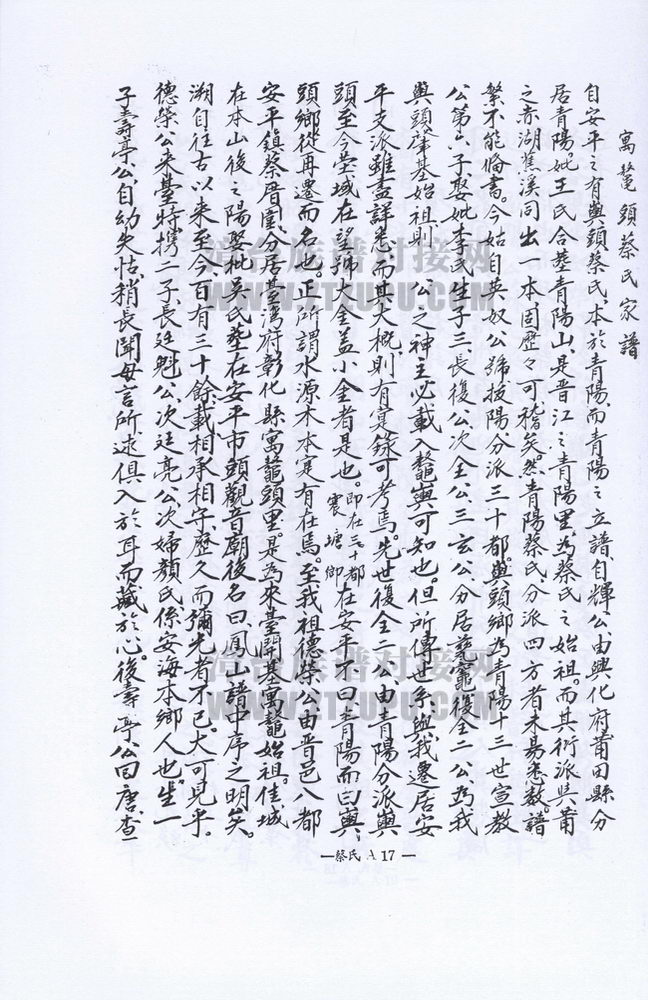 寓鼇頭蔡氏家譜
自安平之有與頭蔡氏、本於青陽、而青陽之立譜、自輝公由興化府莆田縣分
居青陽、妣王氏合塟青陽山、是晋江之青陽里、為蔡氏之始祖。而其衍派與莆
之赤湖蕉溪同出一本、固歷々可稽矣。然青陽蔡氏、分派四方者未易悉数。譜
繁不能備書。今姑自英奴公號拔陽分派三十都。與頭鄉為青陽十三世宣教
公第六子、娶妣李氏生子三、長復公、次全公、三玄公、分居
復全二公為我
與頭肇基始祖、則
公之神主必載入鼇與可知也。但所傳世系、與我遷居安
平支派雖盡詳悉、而其大概、則有寔錄可考焉。先世復全二公由青陽分派與
頭至今塋域在望、號大金盖小金者是也。即在三十都震塘鄉在安平不曰青陽而曰與
頭鄉、從再遷而名也。正所謂水源木本寔有在焉。至我祖德榮公由晋邑八都
安平鎮蔡厝圍、分居臺灣府彰化縣寓鼇頭里。是為來臺開基寓鼇始祖。佳城
在本山後之陽、娶妣吳氏、塟在安平市頭觀音廟後名曰、鳳山譜中序之明矣。
溯自往古以來至今百有三十餘載、相承相守、歷久而彌光者不已、大可見乎。
德榮公来臺時携二子、長廷魁公、次廷亮公、次婦顏氏係安海本鄉人也。生一
子壽亭公自幼失怙、稍長聞母言所述、俱入於耳而藏於心、後壽亭公回唐、查
—蔡氏 A 17—
台族谱对接网
WWW.TTZUPU.COM
台族谱对接网
WWW.TTZUPU.COM